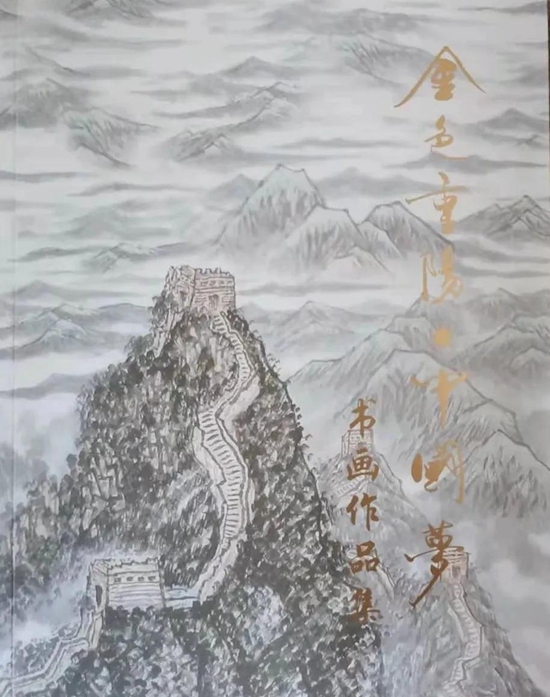 金色重陽·中國夢
书画作品集